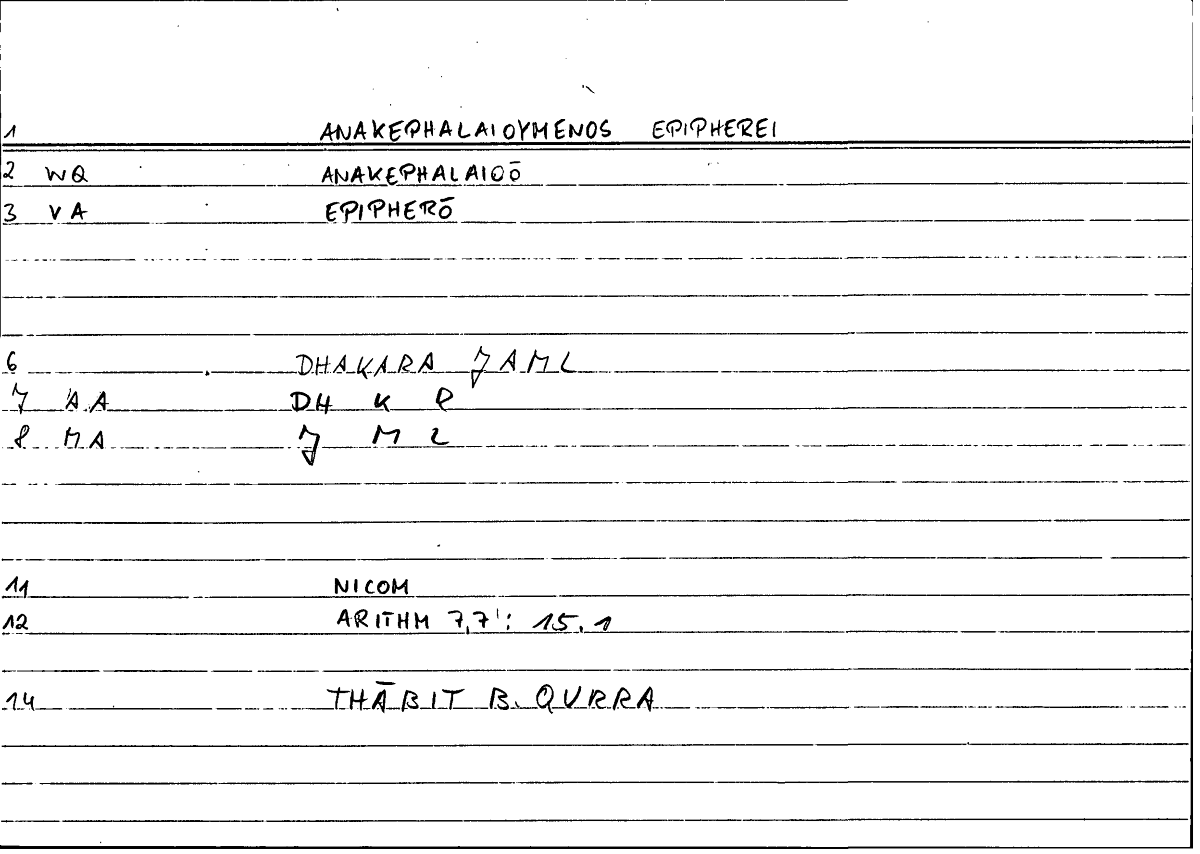 1 ANAKEPHALAIOYMENOS EPIPHEREI
2 WQ ANAKEPHALAIOŌ
3 VA EPIPHERŌ
6 DHAKARA JAML
7 AA DH K R
8 MA J M L
11 NICOM
12 ARITHM 7,7': 15.1
14 THĀBIT B. QURRA